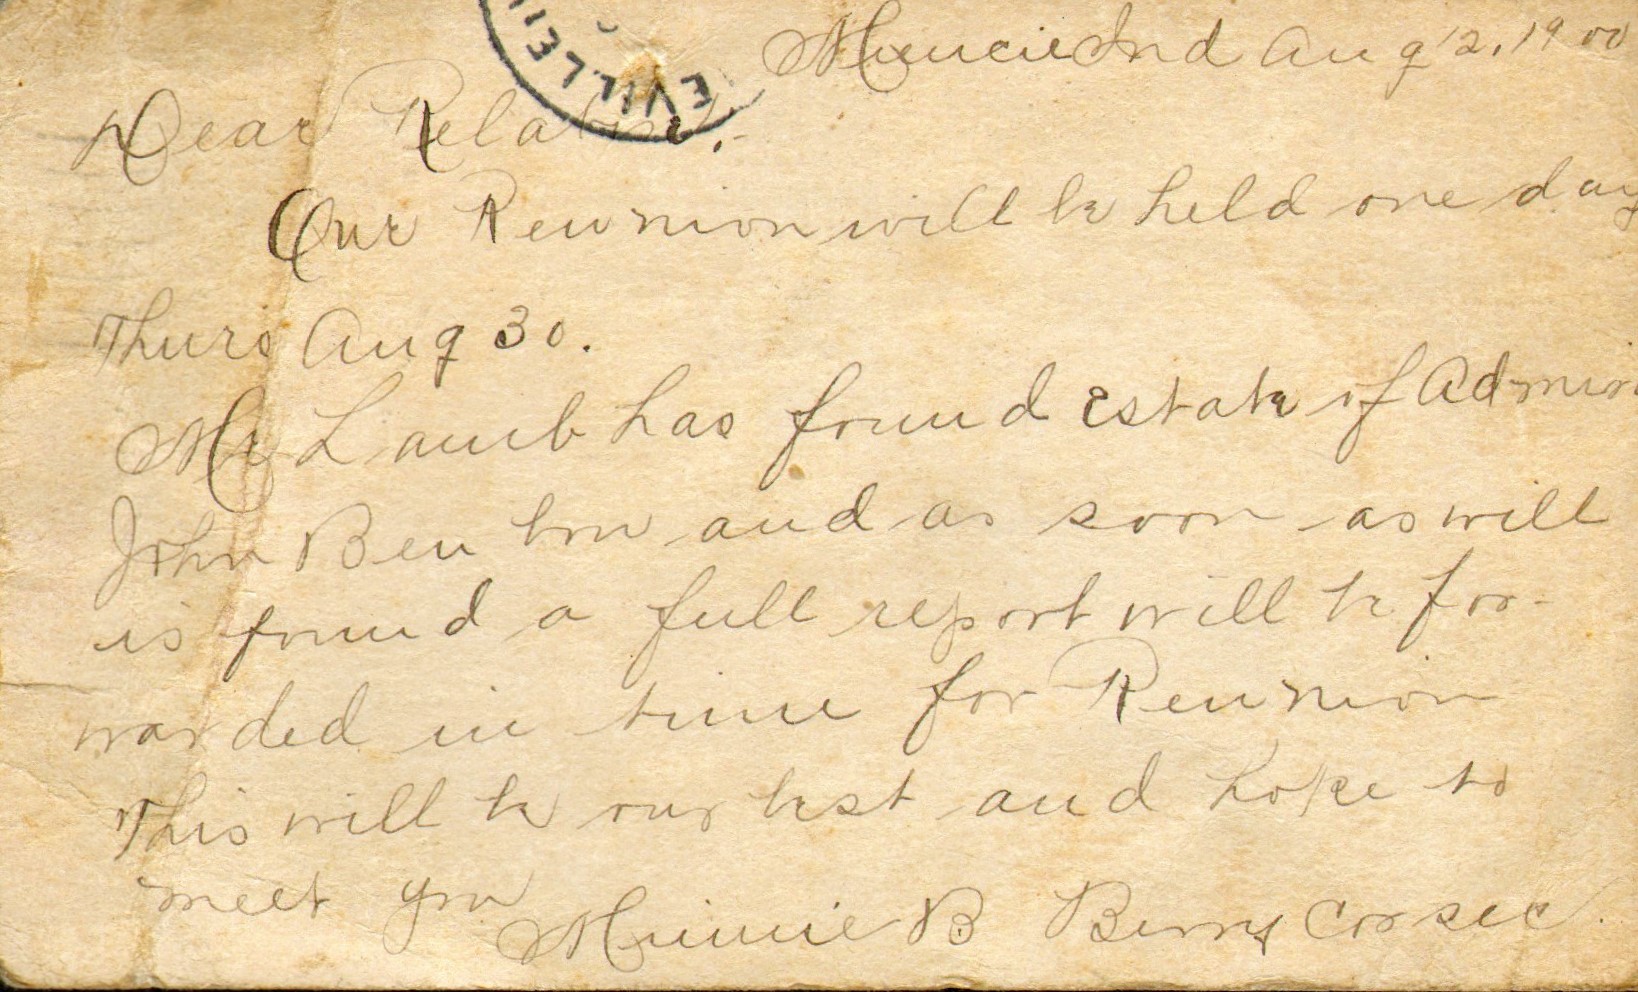 EVILLE
Muncie Ind Aug 12, 1900
Dear Relative.-
Our Reunion will be held one day
Thurs Aug 30.
Mr Lamb has found estate of Admir
John Ben bow and as soon as will
is found a full report will be for-
warded in time for Reunion
This will be our best and hope to
meet you
Minnie B Berry Cor sec.